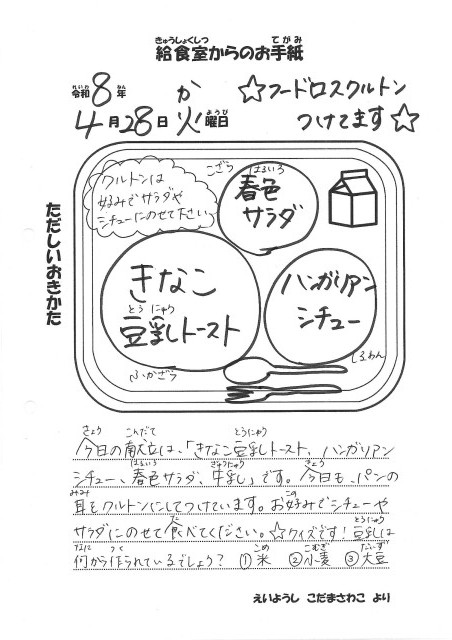 きゅうしょくしつ てがみ
給食室からのお手紙
れいわ ねん
令和8年
4月28日 火曜日
か ようび
☆フードロスクルトン
つけてます☆
ただしいおきかた
クルトンは
好みでサラダや
シチューにのせて下さい
こざら
はるいろ
春色
サラダ
きなこ
とうにゅう
豆乳トースト
ふかざら
ハンガリアン
シチュー
しるわん
きょう こんだて とうにゅう
今日の献立は、「きなこ豆乳トースト、ハンガリアン
はるいろ ぎゅうにゅう きょう
シチュー、春色サラダ、牛乳」です。今日も、パンの
みみ この
耳をクルトンにしてつけています。お好みでシチューや
た とうにゅう
サラダにのせて食べてください。☆クイズです!豆乳は
なに つく こめ こむぎ だいず
何から作られているでしょう? ①米 ②小麦 ③大豆
えいようし こだまさわこ より